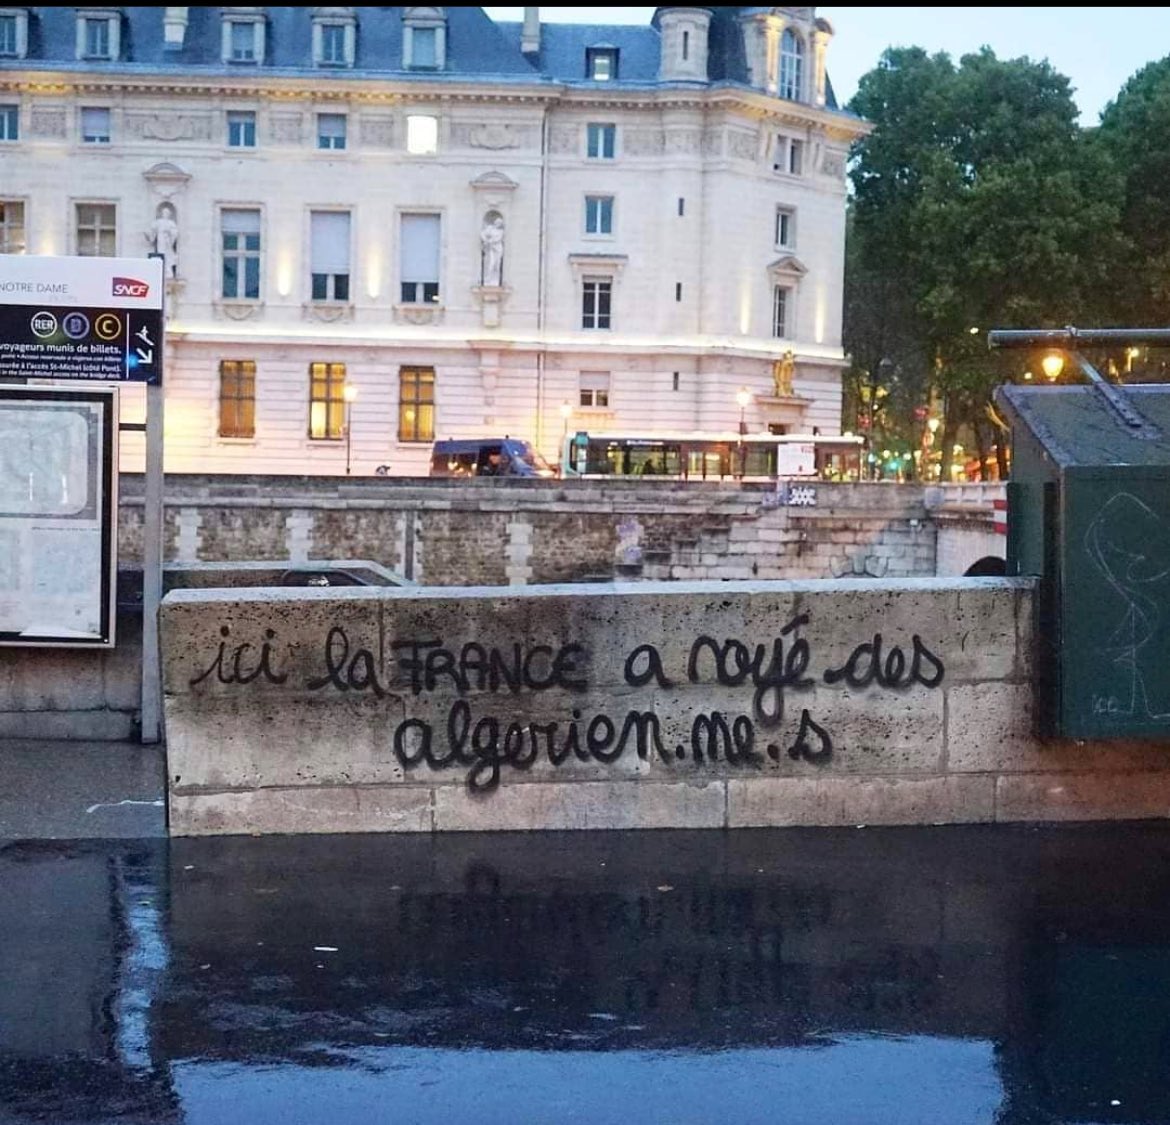 NOTRE DAME
SNCF
RER B C
voyageurs munis de billets.
ici la FRANCE a noyé des
algerien.ne.s